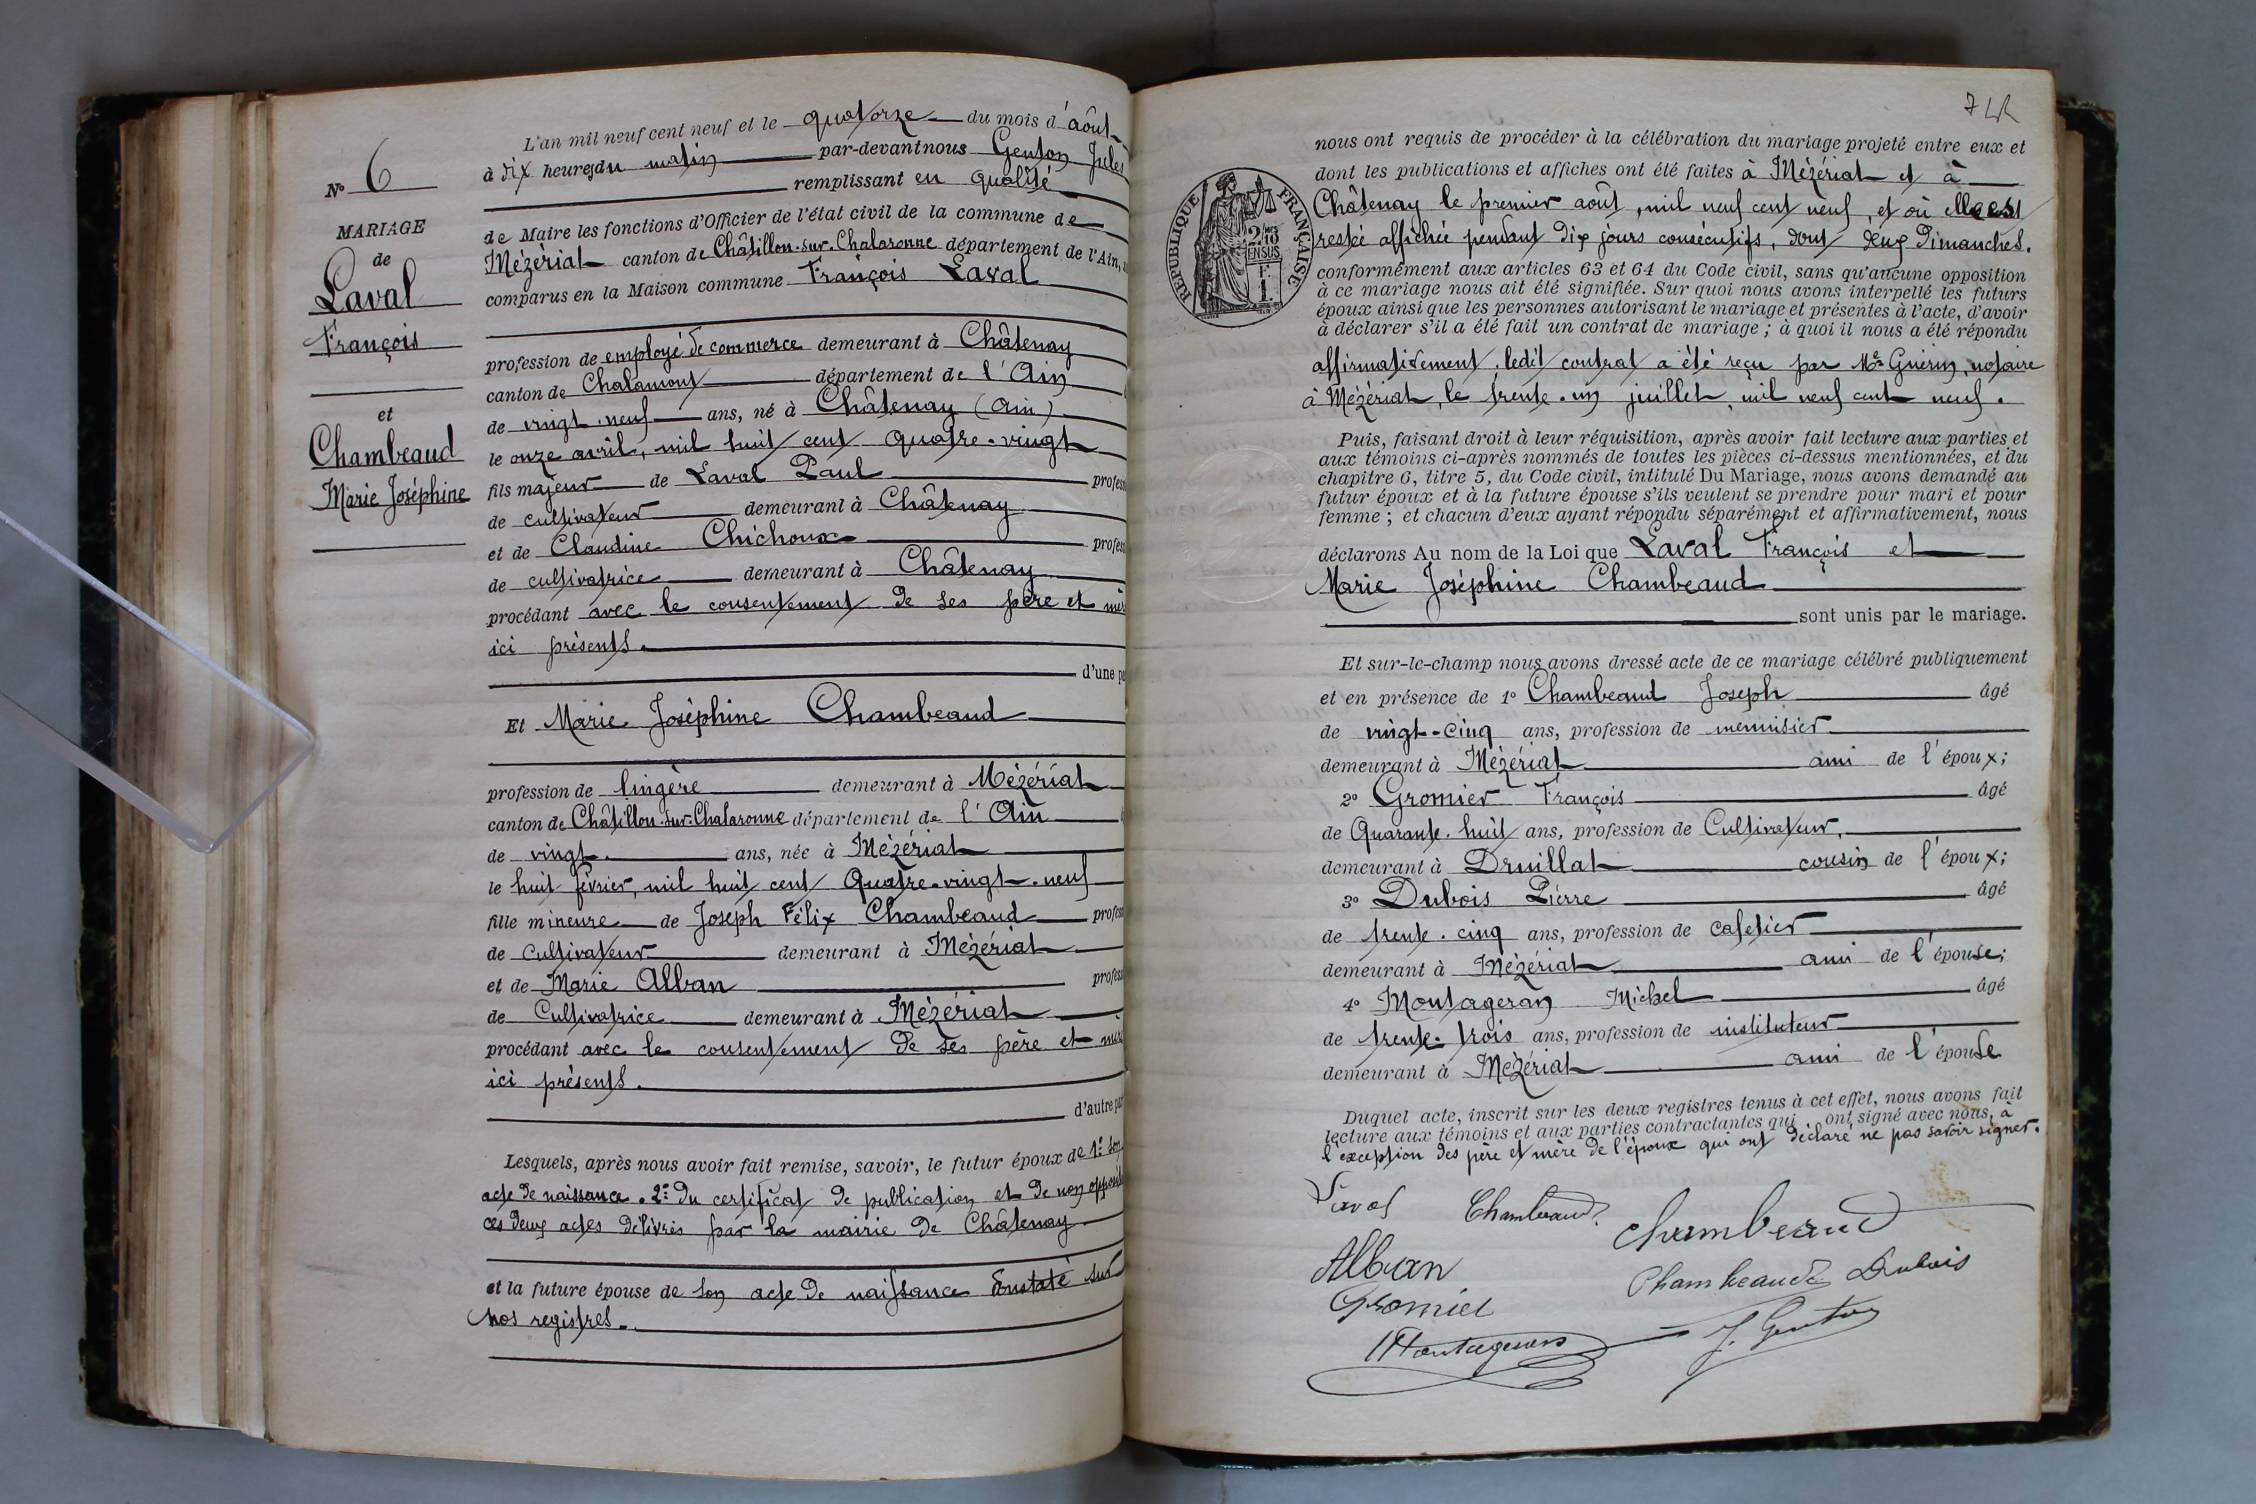 N° 6
MARIAGE
de
Laval
François
et
Chambeaud
Marie Joséphine
L'an mil neuf cent neuf et le quatorze du mois d'août
à dix heures du matin par-devant nous Genton Jules
remplissant en qualité
de Maire les fonctions d'Officier de l'état civil de la commune de
Mézériat canton de Châtillon-sur-Chalaronne département de l'Ain,
comparus en la Maison commune François Laval
profession de employé de commerce demeurant à Châtenay
canton de Chalamont département de l'Ain
de vingt-neuf ans, né à Châtenay (Ain)
le onze avril, mil huit cent quatre-vingt
fils majeur de Laval Paul profess
de cultivateur demeurant à Châtenay
et de Claudine Chichoux profess
de cultivatrice demeurant à Châtenay
procédant avec le consentement de ses père et mère
ici présents.
d'une pa
Et Marie Joséphine Chambeaud
profession de lingère demeurant à Mézériat
canton de Châtillon-sur-Chalaronne département de l'Ain
de vingt ans, née à Mézériat
le huit février, mil huit cent quatre-vingt-neuf
fille mineure de Joseph Félix Chambeaud profess
de Cultivateur demeurant à Mézériat
et de Marie Alban profess
de Cultivatrice demeurant à Mézériat
procédant avec le consentement de ses père et mère
ici présents.
d'autre par
Lesquels, après nous avoir fait remise, savoir, le futur époux de 1° son
acte de naissance. 2° du certificat de publication et de non opposit
ces deux actes délivrés par la mairie de Châtenay
et la future épouse de son acte de naissance constaté sur
nos registres.
74
RÉPUBLIQUE FRANÇAISE
2/10 EN SUS
1 F.
nous ont requis de procéder à la célébration du mariage projeté entre eux et
dont les publications et affiches ont été faites à Mézériat et à
Châtenay le premier août, mil neuf cent neuf, et où elle est
restée affichée pendant dix jours consécutifs, dont deux dimanches.
conformément aux articles 63 et 64 du Code civil, sans qu'aucune opposition
à ce mariage nous ait été signifiée. Sur quoi nous avons interpellé les futurs
époux ainsi que les personnes autorisant le mariage et présentes à l'acte, d'avoir
à déclarer s'il a été fait un contrat de mariage ; à quoi il nous a été répondu
affirmativement, ledit contrat a été reçu par Me Guérin, notaire
à Mézériat, le trente-un juillet, mil neuf cent neuf.
Puis, faisant droit à leur réquisition, après avoir fait lecture aux parties et
aux témoins ci-après nommés de toutes les pièces ci-dessus mentionnées, et du
chapitre 6, titre 5, du Code civil, intitulé Du Mariage, nous avons demandé au
futur époux et à la future épouse s'ils veulent se prendre pour mari et pour
femme ; et chacun d'eux ayant répondu séparément et affirmativement, nous
déclarons Au nom de la Loi que Laval François et
Marie Joséphine Chambeaud
sont unis par le mariage.
Et sur-le-champ nous avons dressé acte de ce mariage célébré publiquement
et en présence de 1° Chambeaud Joseph âgé
de vingt-cinq ans, profession de menuisier
demeurant à Mézériat ami de l'époux;
2° Gromier François âgé
de Quarante-huit ans, profession de Cultivateur,
demeurant à Druillat cousin de l'époux;
3° Dubois Pierre âgé
de trente-cinq ans, profession de cafetier
demeurant à Mézériat ami de l'épouse;
4° Montageran Michel âgé
de trente-trois ans, profession de instituteur
demeurant à Mézériat ami de l'épouse
Duquel acte, inscrit sur les deux registres tenus à cet effet, nous avons fait
lecture aux témoins et aux parties contractantes qui ont signé avec nous, à
l'exception des père et mère de l'époux qui ont déclaré ne pas savoir signer.
Laval Chambeaud Chambeaud
Alban Chambeaud Dubois
Gromier
Montageran J. Genton